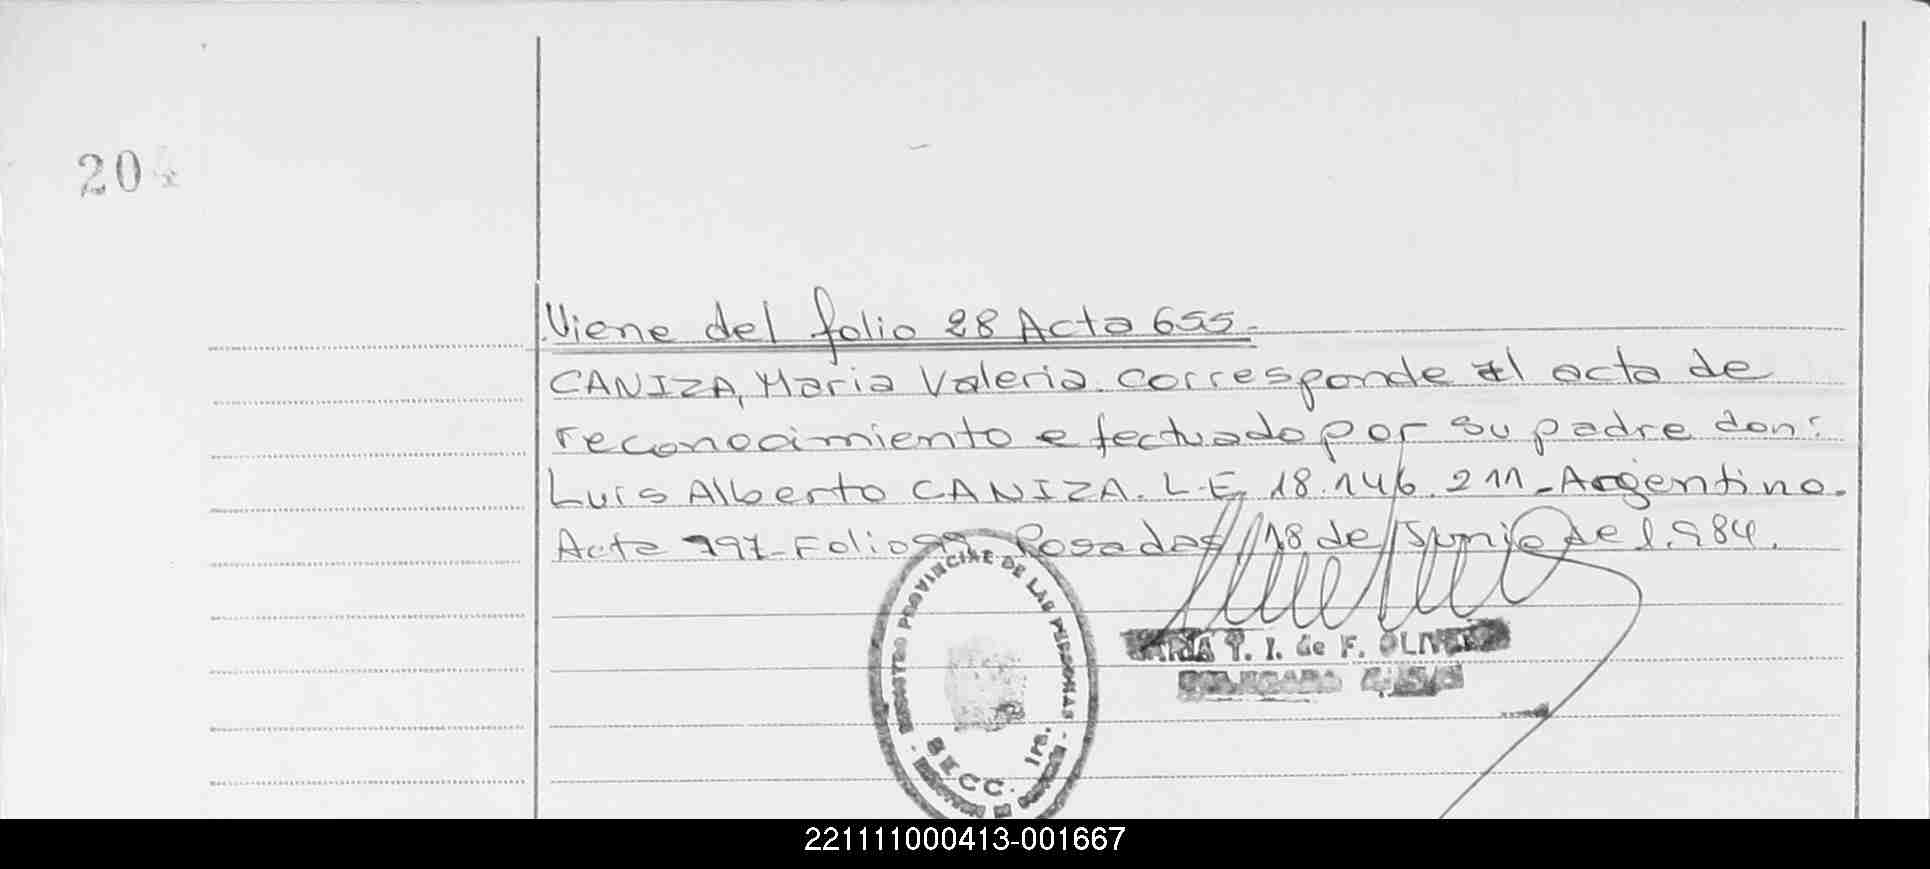 204
Viene del folio 28 Acta 655.
CANIZA, Maria Valeria. corresponde al acta de
reconocimiento efectuado por su padre don:
Luis Alberto CANIZA. L.E. 18.146.211-Argentino.
Acta 797-Folio 99 Posadas, 18 de Junio de 1.984.
REGISTRO PROVINCIAL DE LAS PERSONAS
SECC. 1ra.
MARIA T. I. de F. OLIVERA
221111000413-001667